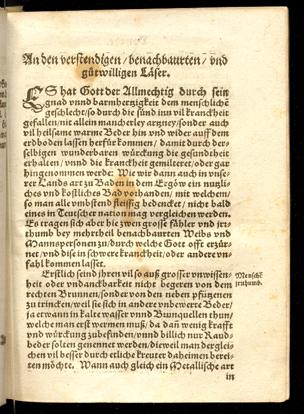 An den verstendigen / benachbaurten / vnd
gůtwilligen Läser.
ES hat Gott der Allmechtig durch sein
gnad vnnd barmhertzigkeit dem menschlichẽ
geschlecht / so durch die sünd inn vil kranckheit
gefallen / nit allein mancherley artzney / sonder auch
vil heilsame warme Beder hin vnd wider auff dem
erdboden lassen herfür kommen / damit durch der-
selbigen wunderbaren würckung die gesundtheit
erhalten / vnnd die kranckheit gemilteret / oder gar
hingenommen werde: Wie wir dann auch in vnse-
rer Lands art zu Baden im Ergöw ein nutzli-
ches vnd kostliches Bad vorhanden / mit welchem /
so man alle vmbstend fleissig bedencket / nicht bald
eines in Teutscher nation mag vergleichen werden.
Es tragen sich aber hie zwen grosse fähler vnd jrr-
thumb bey mehrtheil benachbaurten Weibs vnd
Mannspersonen zů / durch welche Gott offt erzür-
net / vnd dise in schwere kranckheit / oder andere vn-
fahl kommen lasset.
Erstlich seind jhren vil so auß grosser vnwissen-
heit oder vndanckbarkeit nicht begeren von dem
rechten Brunnen / sonder von den neben pfützenen
zu trincken / weil sie sich in andere vnbewerte Beder /
ja etwann in kalte wasser vnnd Brunquellen thun /
welche man erst wermen muß / da dañ wenig krafft
vnd würckung zubefinden / vnnd billich nur Raud-
beder solten genennet werden / dieweil man derglei-
chen vil besser durch etliche kreuter daheimen berei-
ten möchte. Wann auch gleich ein Metallische art
in
Menschẽ
jrrthumb.